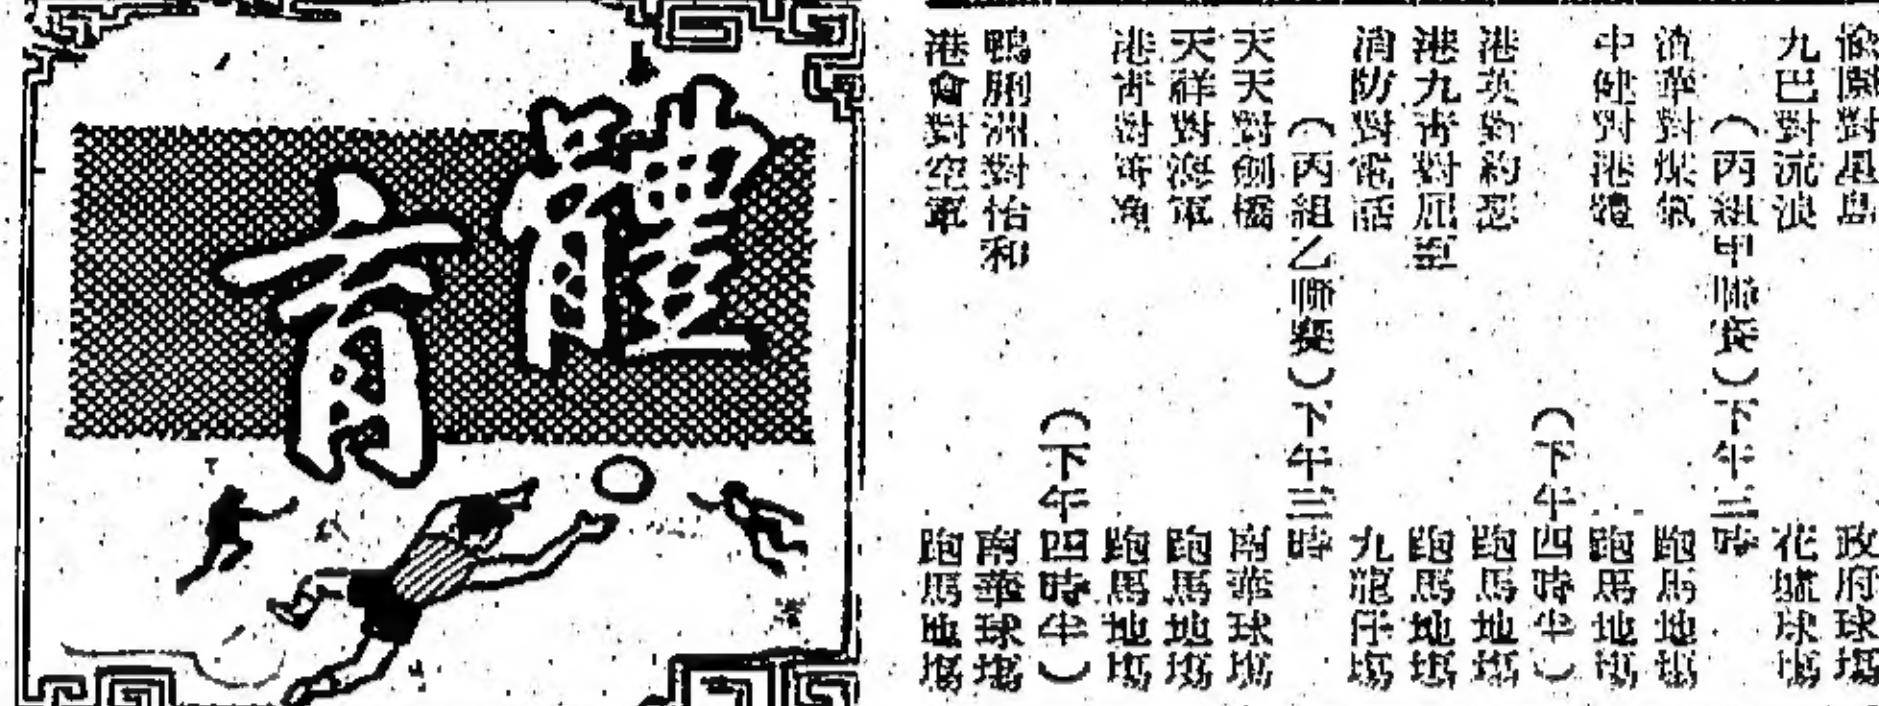 愉園對星島 政府球場
九巴對流浪 花墟球場
（丙組甲聯賽）下午三時
華對煤氣 跑馬地場
中健對港體 跑馬地場
（下午四時半）
港英對約瑟 跑馬地場
港九青對屈臣 跑馬地場
消防對電話 九龍仔場
（丙組乙聯賽）下午三時
天天對劍橋 南華球場
天祥對海軍 跑馬地場
港青對 跑馬地場
（下午四時半）
鴨脷洲對怡和 南華球場
港會對空軍 跑馬地場
體育